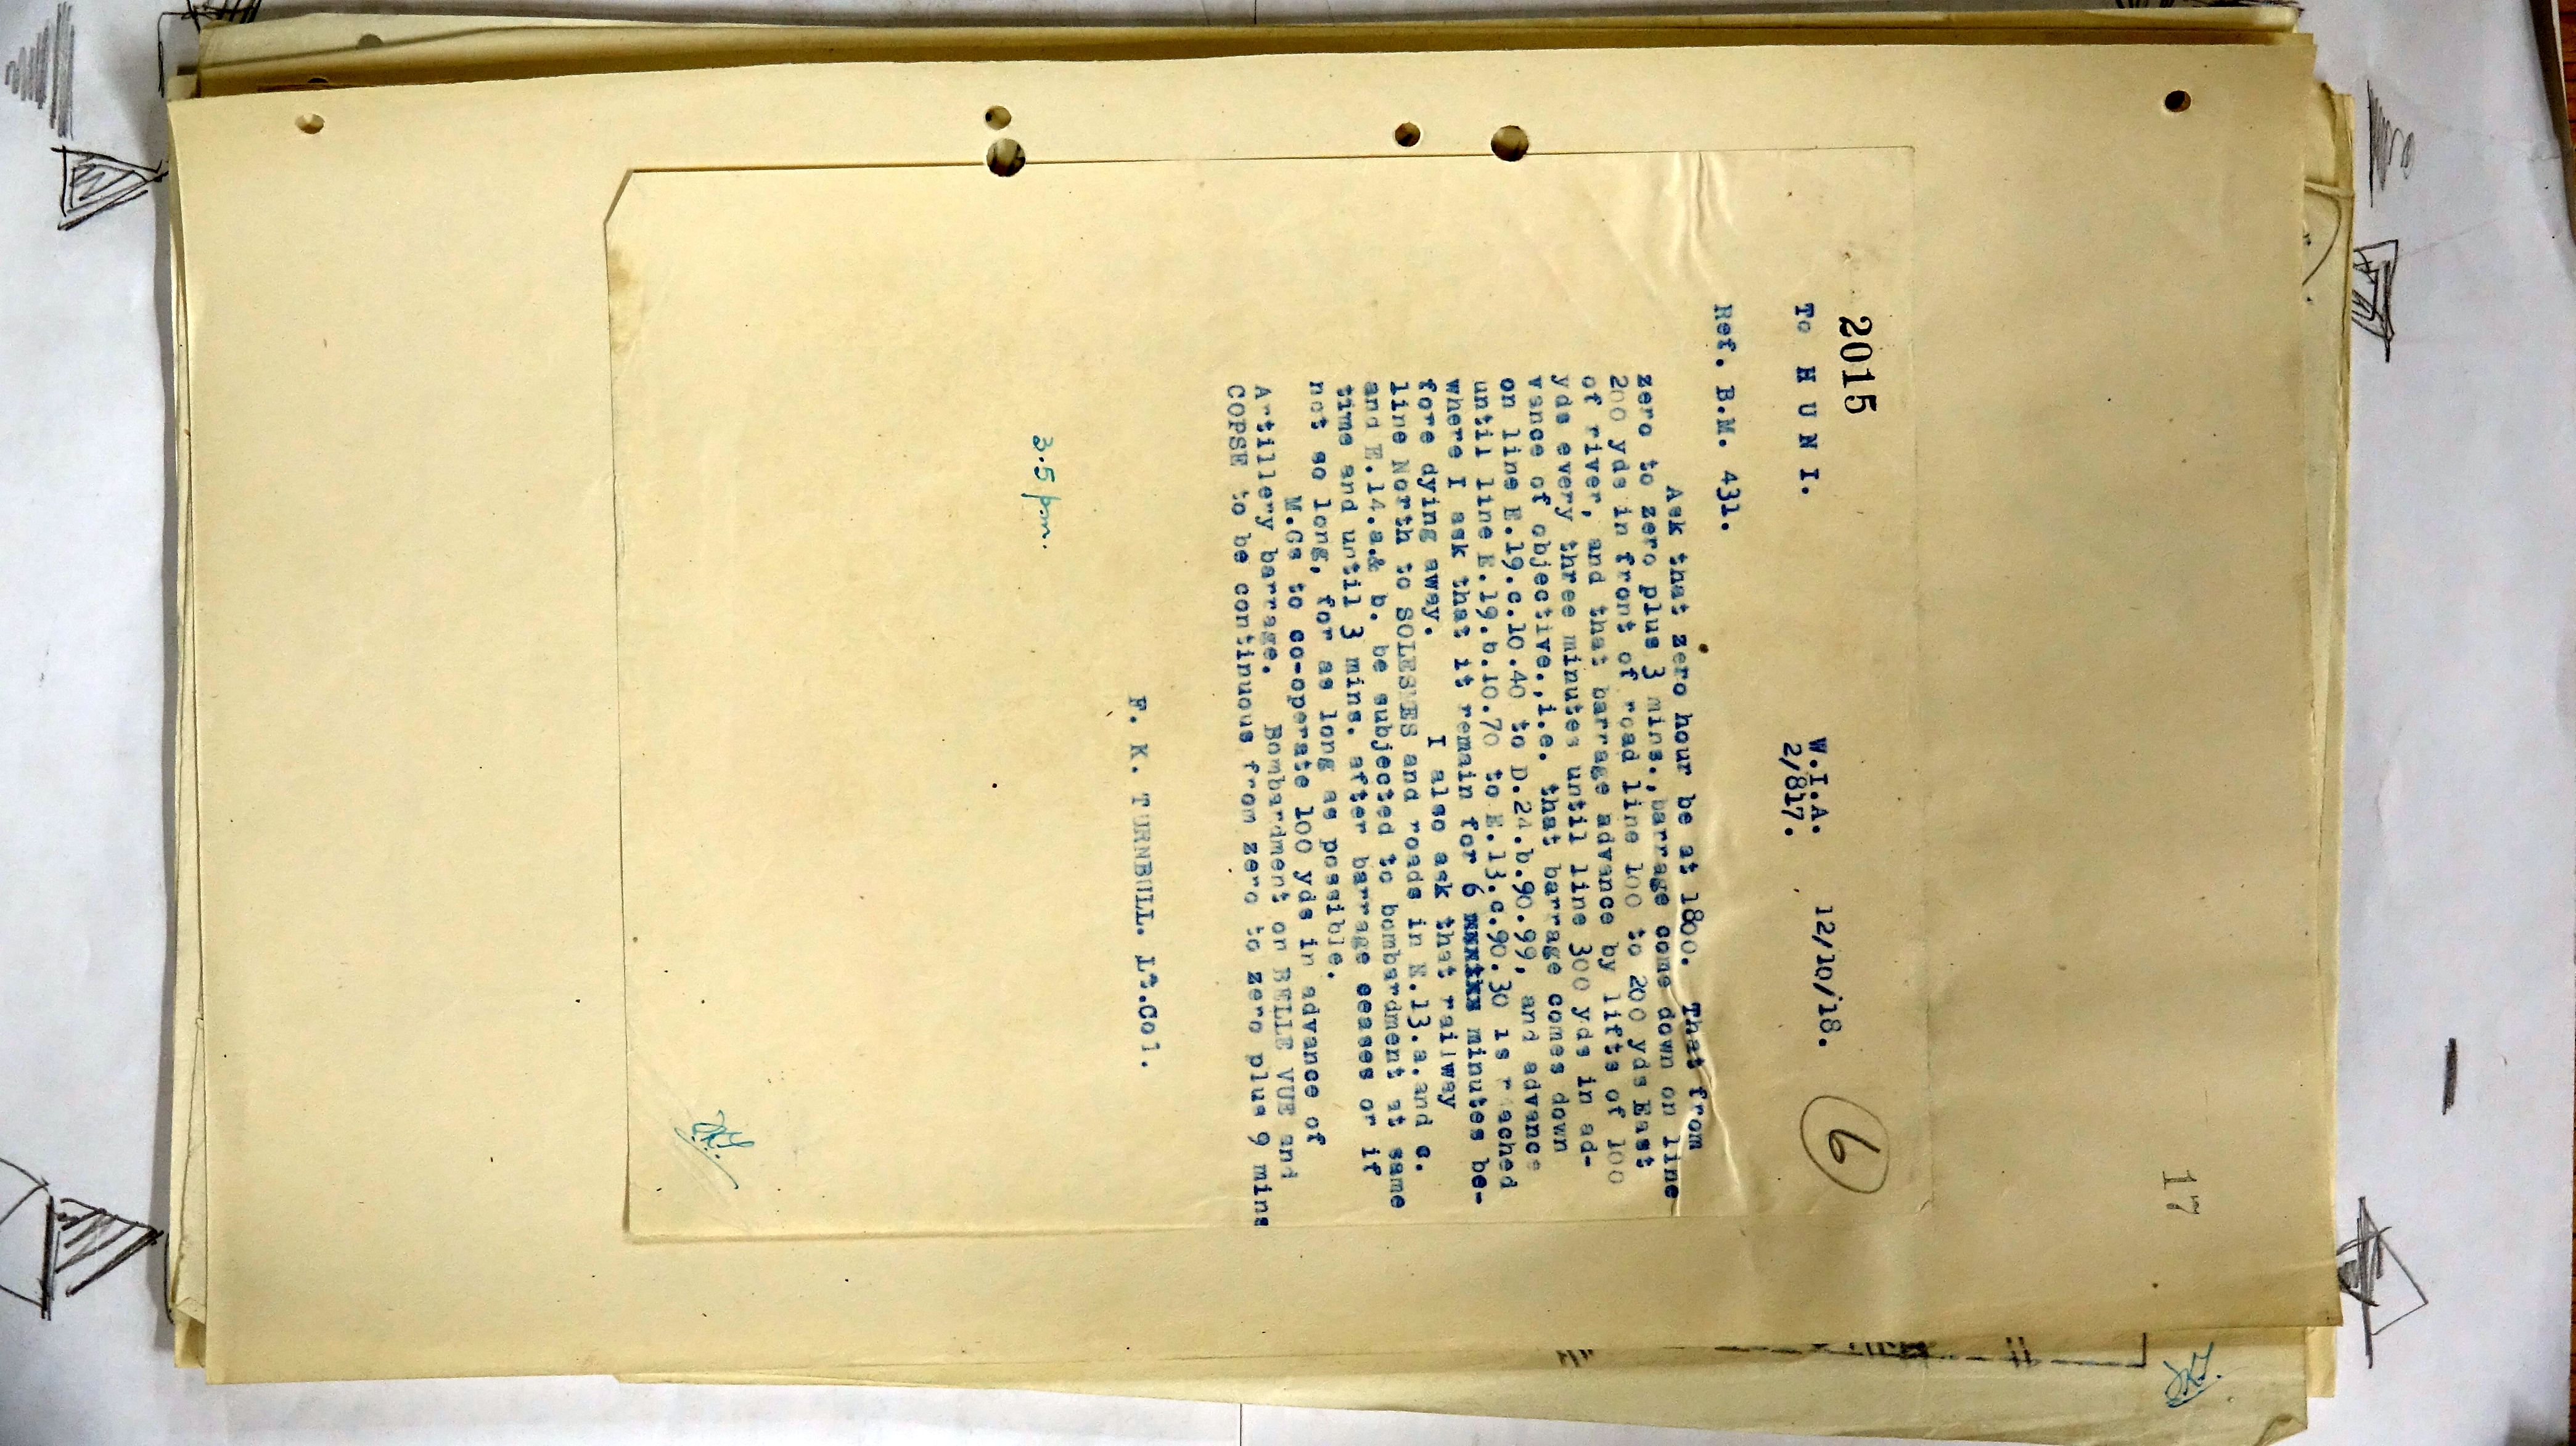 17
2015
W.I.A.    12/10/18.
2/817.
6
To H U N I.
Ref. B.M. 431.
Ask that zero hour be at 1800.  That from
zero to zero plus 3 mins., barrage come down on line
200 yds in front of road line 100 to 200 yds East
of river, and that barrage advance by lifts of 100
yds every three minutes until line 300 yds in ad-
vance of objective.,i.e. that barrage comes down
on line E.19.c.10.40 to D.24.b.90.99, and advance
until line E.19.b.10.70 to E.13.c.90.30 is r ached
where I ask that it remain for 6 minutes be-
fore dying away.      I also ask that railway
line North to SOLESMES and roads in E.13.a.and c.
and E.14.a.& b. be subjected to bombardment at same
time and until 3 mins. after barrage ceases or if
not so long, for as long as possible.
M.Gs to co-operate 100 yds in advance of
Artillery barrage.    Bombardment on BELLE VUE and
COPSE to be continuous from zero to zero plus 9 mins
F. K. TURNBULL. Lt.Col.
3.5 pm.